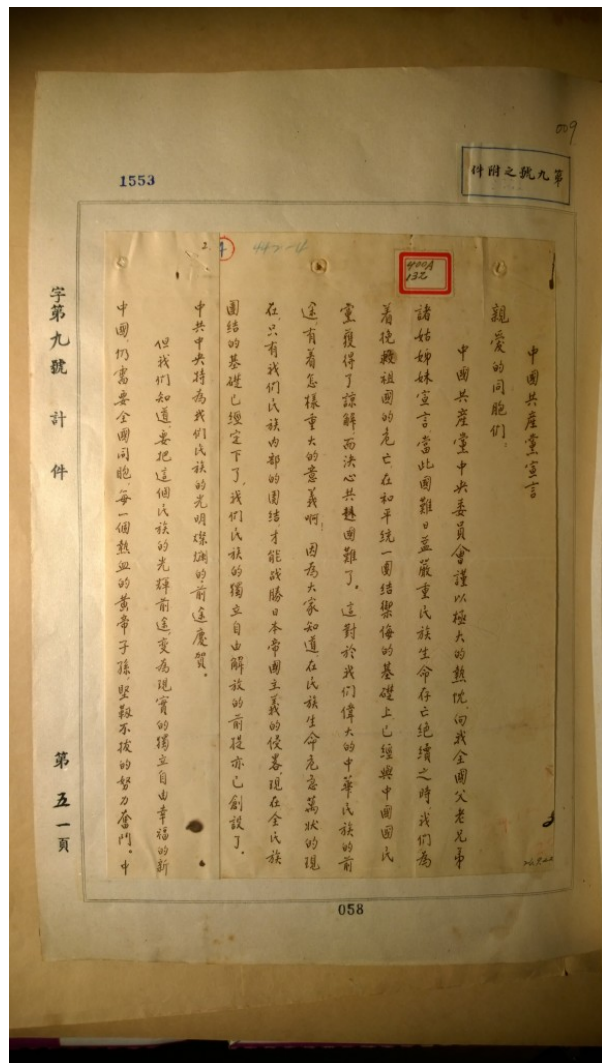 009
第九號之附件
1553
400A
132
442-4
中國共産黨宣言
親愛的同胞們,
中國共産黨中央委員會謹以極大的熱忱,向我全國父老兄弟
諸姑姊妹宣言,當此國難日益嚴重民族生命存亡絕續之時,我們為
着挽救祖國的危亡,在和平統一團結禦侮的基礎上,已經與中國國民
黨獲得了諒解而決心共赴國難了。這對於我们偉大的中華民族的前
途,有着怎樣重大的意義啊!因為大家知道,在民族生命危急萬狀的現
在,只有我們民族內部的團結才能战勝日本帝國主義的侵畧,現在全民族
團結的基礎已經定下了,我們民族的獨立自由解放的前提亦已創設了。
2
中共中央特為我们民族的光明燦爛的前途慶賀。
但我们知道,要把這個民族的光輝前途,变為現實的獨立自由幸福的新
中國,仍需要全國同胞,每一個熱血的黃帝子孫,堅靱不拔的努力奮鬥。中
字第九號 計 件
第五一頁
058